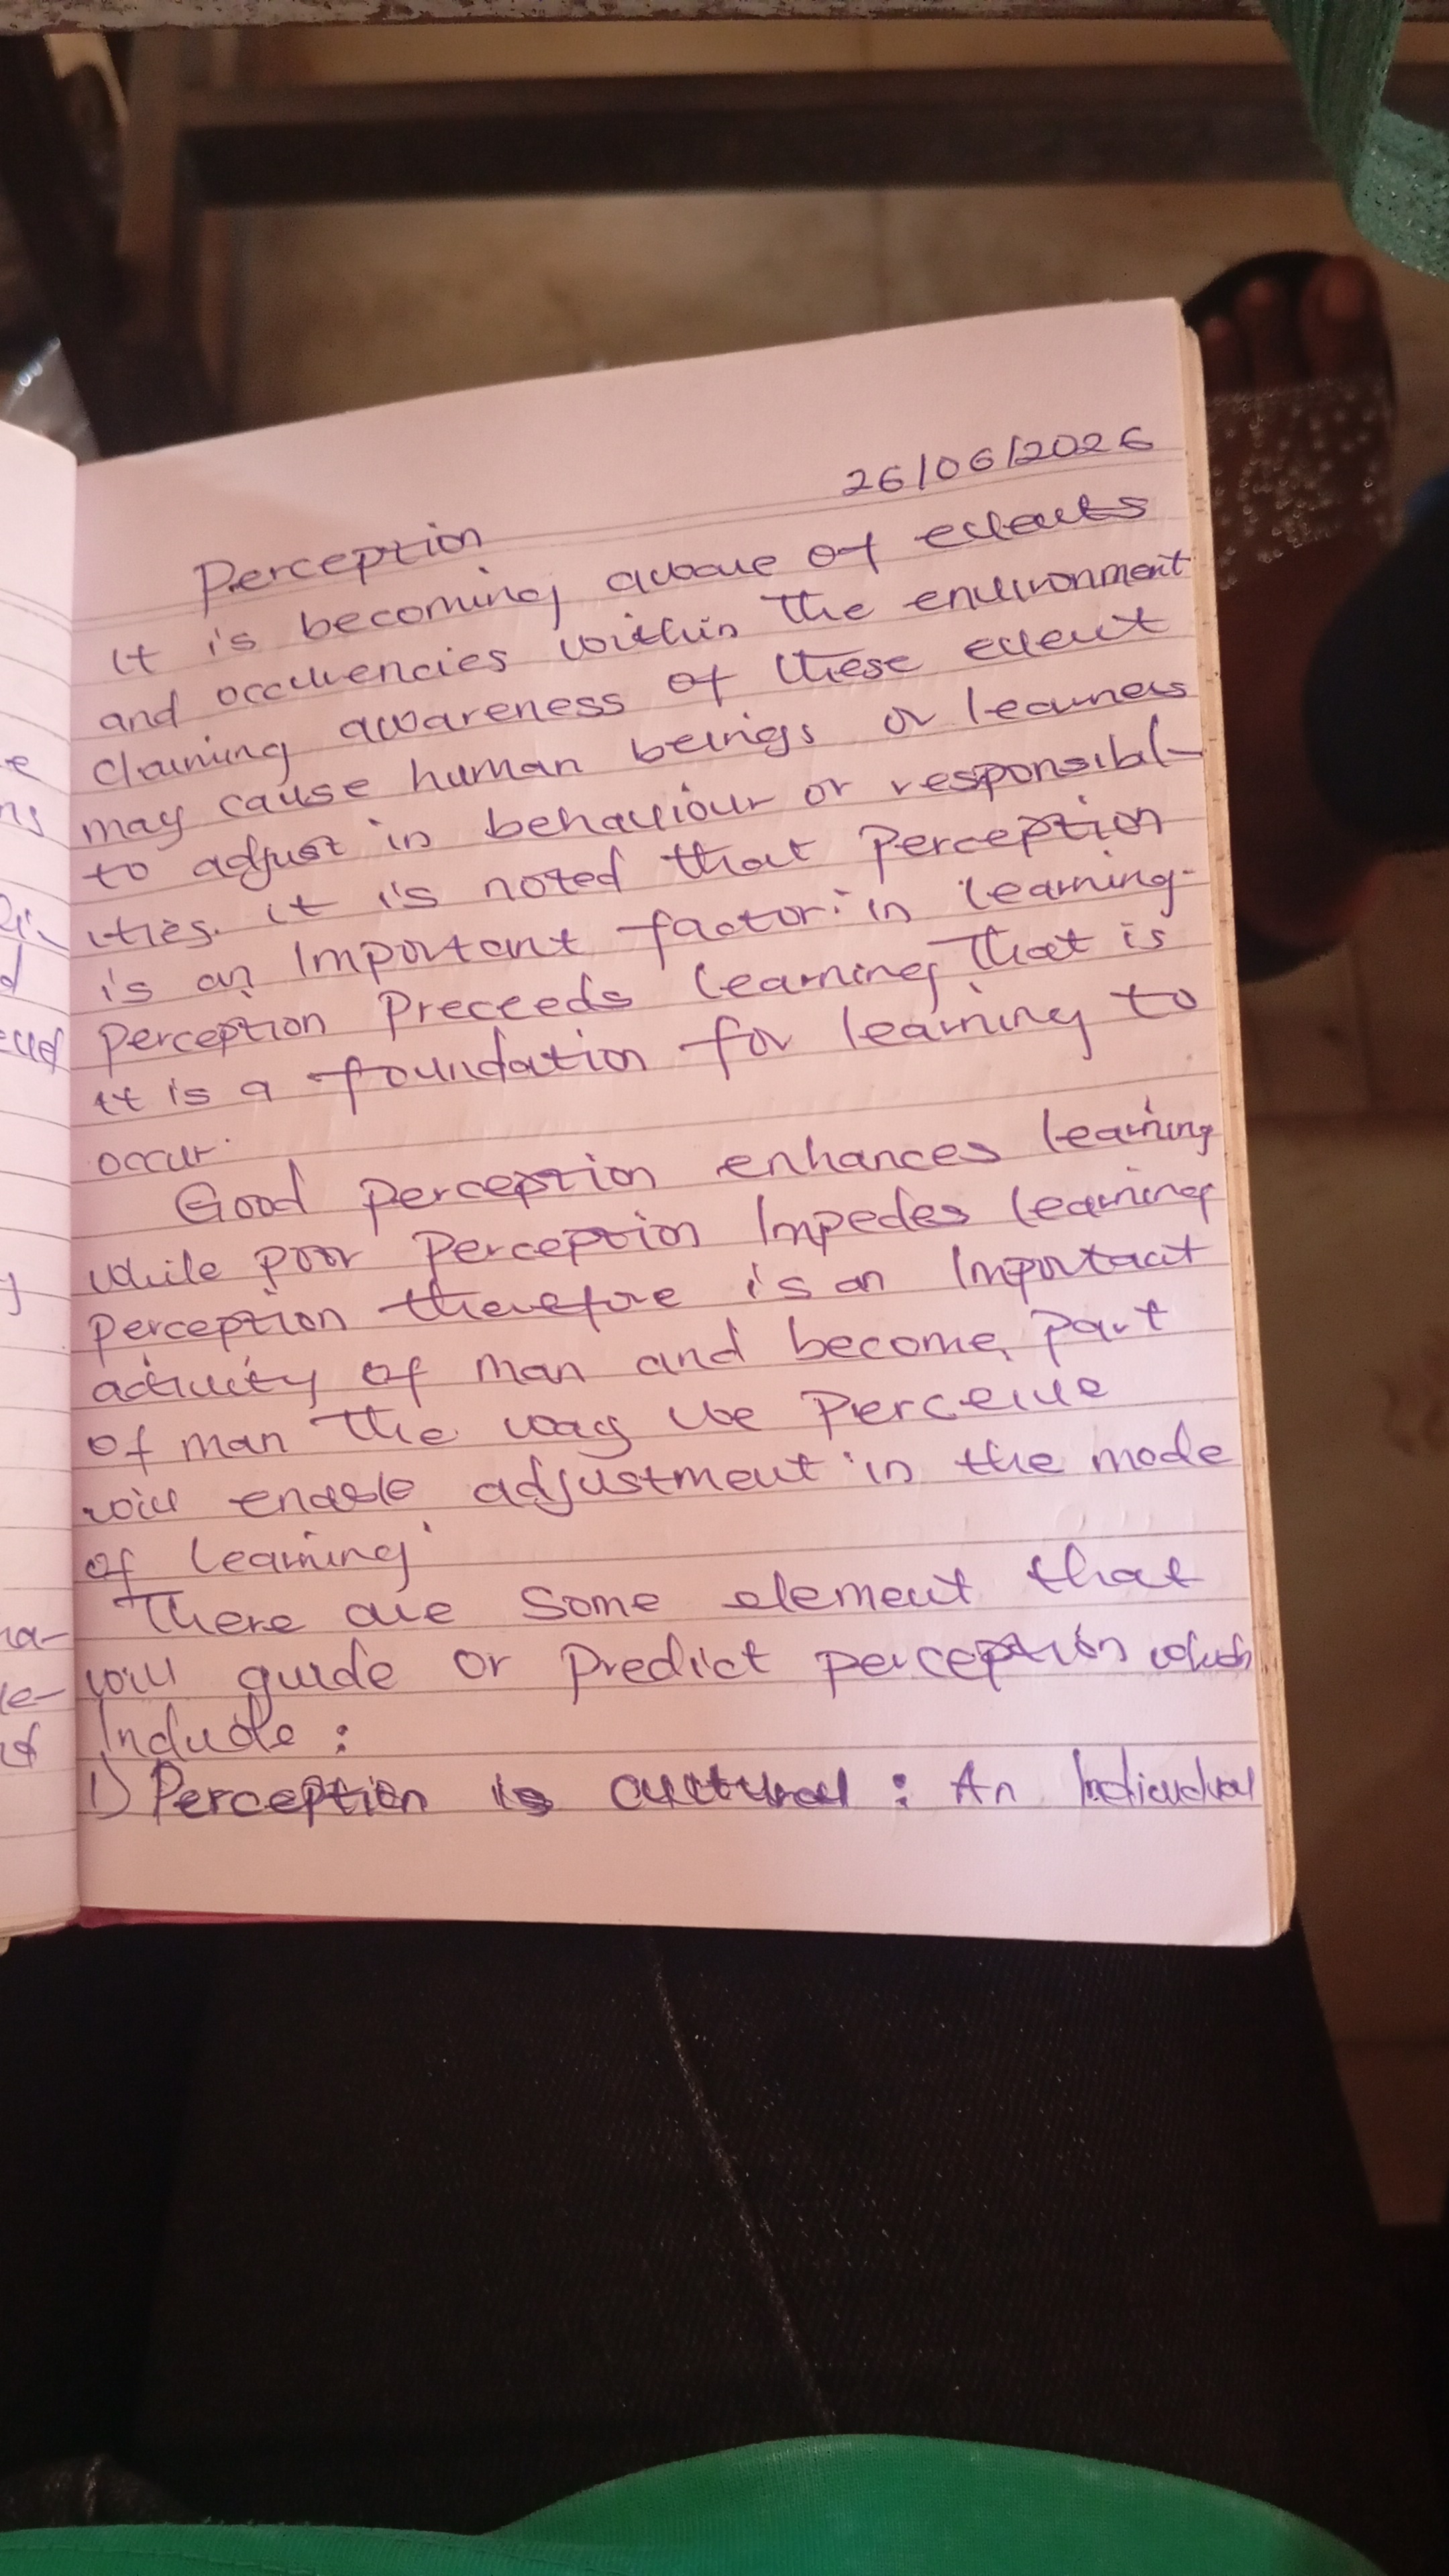 26/06/2026
Perception
It is becoming aware of events
and occurencies within the environment
claiming awareness of these event
may cause human beings or learners
to adjust in behaviour or responsibil-
ities. it is noted that Perception
is an Important factor in learning.
Perception Preceeds learning That is
it is a foundation for learning to
occur.
Good perception enhances learning
while poor Perception Impedes learning
Perception therefore is an Important
activity of man and become Part
of man The way we Perceive
will enable adjustment in the mode
of learning
There are Some element that
will guide or Predict perception which
Include :
1) Perception is cultural : An Individual